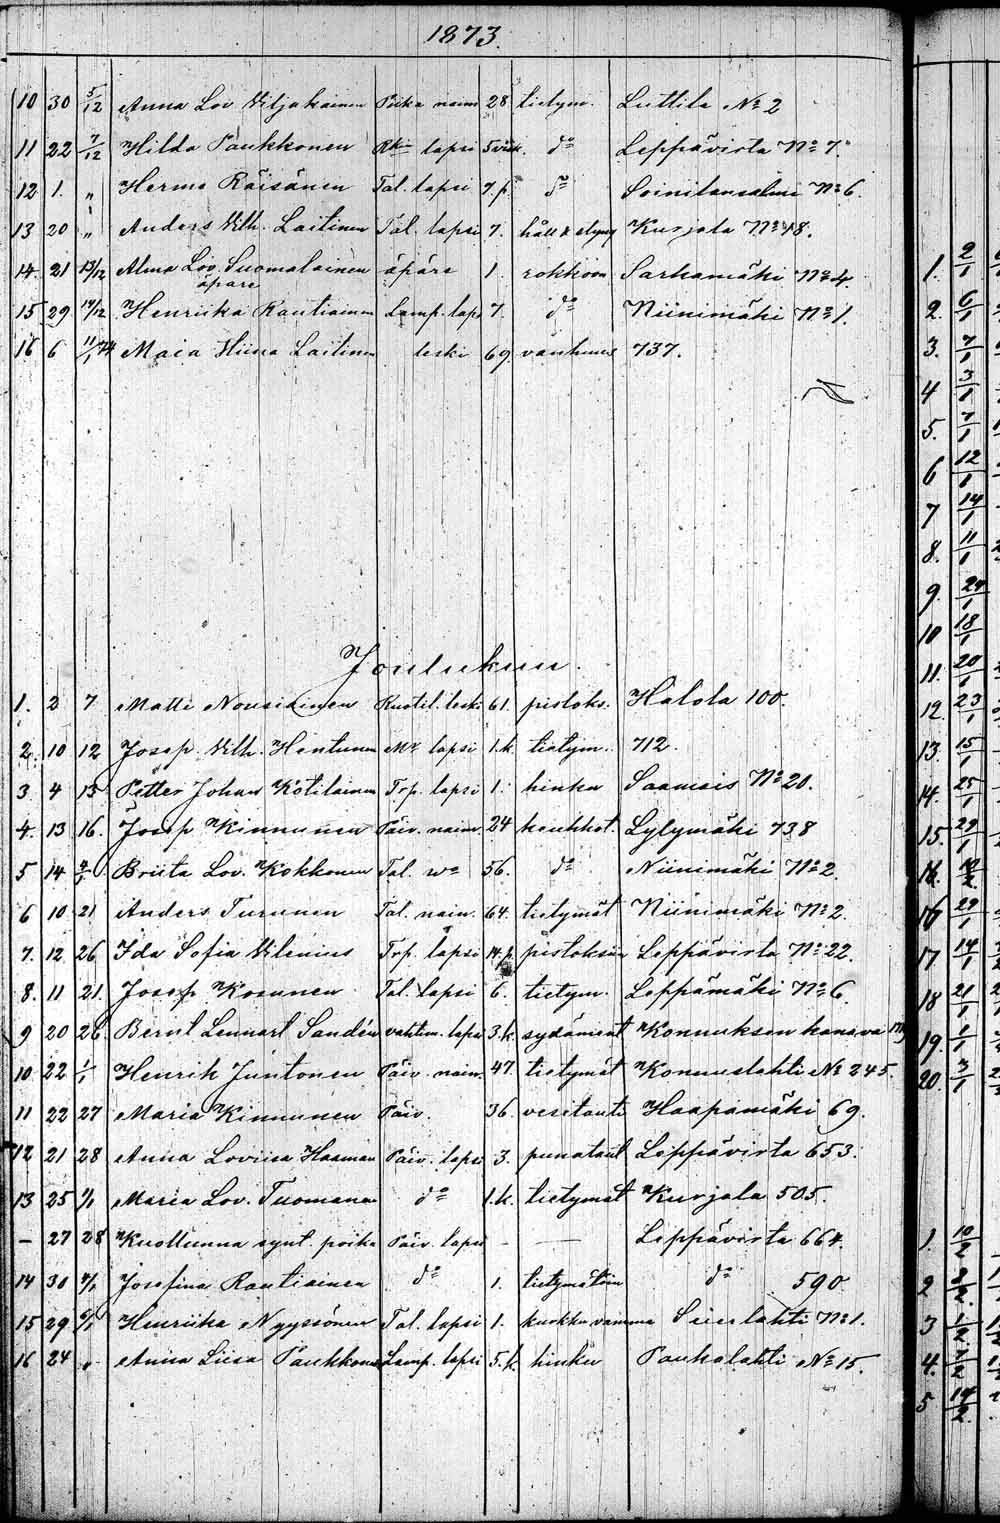 1873.
10 30 5/12 Anna Lov Viljakainen Poika naim 28 tietym. Luttila № 2
11 22 7/12 Hilda Paukkonen lapsi do Leppävirta № 7.
12 1. " Herma Räisänen Tal. lapsi 7. p. do Soinilansalmi № 6.
13 20 " Anders Vilh. Laitinen Tal. lapsi 7. håll & styng Kurjala № 48.
14. 21 13/12 Alma Lov. Suomalainen äpäre 1. rokkoon Sarkamäki № 4.
äpare
15 29 14/12 Henriika Rautiainen Lamp. laps 7. do Niinimäki № 1.
16 6 11/1 74 Maia Stiina Laitinen leski 69. vanhuus 737.
Joulukuu.
1. 2 7 Matti Nousiainen Ruotil. leski 61. pistoks. Halola 100.
2. 10 12 Josep. Vilh. Hentunen Mk lapsi 1.k. tietym. 712.
3 4 15 Petter Johan Kotilainen Trp. lapsi 1. hinku Saamais № 20.
4. 13 16. Josep Kinnunen Päiv. naim. 24 keuhkot. Lylymäki 738
5 14 4/1 Briita Lov. Kokkonen Tal. 56. do Niinimäki № 2.
6 10 21 Anders Turunen Tal. naim. 64. tietymät Niinimäki № 2.
7. 12 26 Ida Sofia Vilenius Trp. lapsi 14.p. pistoksiin Leppävirta № 22.
8. 11 21. Josef Kosunen Tal. lapsi 6. tietym. Leppämäki № 6.
9 20 26. Bernt Lennart Sandén vahtm. lapsi 3.k. sydäment Konnuksen kanava
10 22 1/1 Henrik Juntonen Päiv. naim. 47. tietymät Konnuslahti № 245.
11 22 27 Maria Kinnunen Päiv. 36. vesitauti Haapamäki 69.
12 21 28 Anna Loviisa Haaman Päiv. lapsi 3. punataut Leppävirta 653.
13 25 Maria Lov. Tuomanen do 1.k. tietymät Kurjala 505.
– 27 28 Kuollunna synt. poika Päiv. lapsi — Leppävirta 664.
14 30 Josefina Rautiainen do 1. tietymätöin do 590
15 29 6/1 Henriika Nyyssönen Tal. lapsi 1. kurkku vamma Sierlahti № 1.
16 24 " Anna Liisa Paukkonen Lamp. lapsi 5.k. hinku Paukolahti № 15.
1. 2/1
2. 6/1
3. 7/1
4 3/1
5. 7/1
6 12/1
7 14/1
8. 11/1
9. 24/1
10 18/1
11. 20/1
12. 23/1
13. 15/1
14. 25/1
15. 29/1
16 29/1
17 14/1
18 21/1
19. 1/1
20. 3/1
1. 10/2
2
3 1/2
4. 7/2
5 14/2